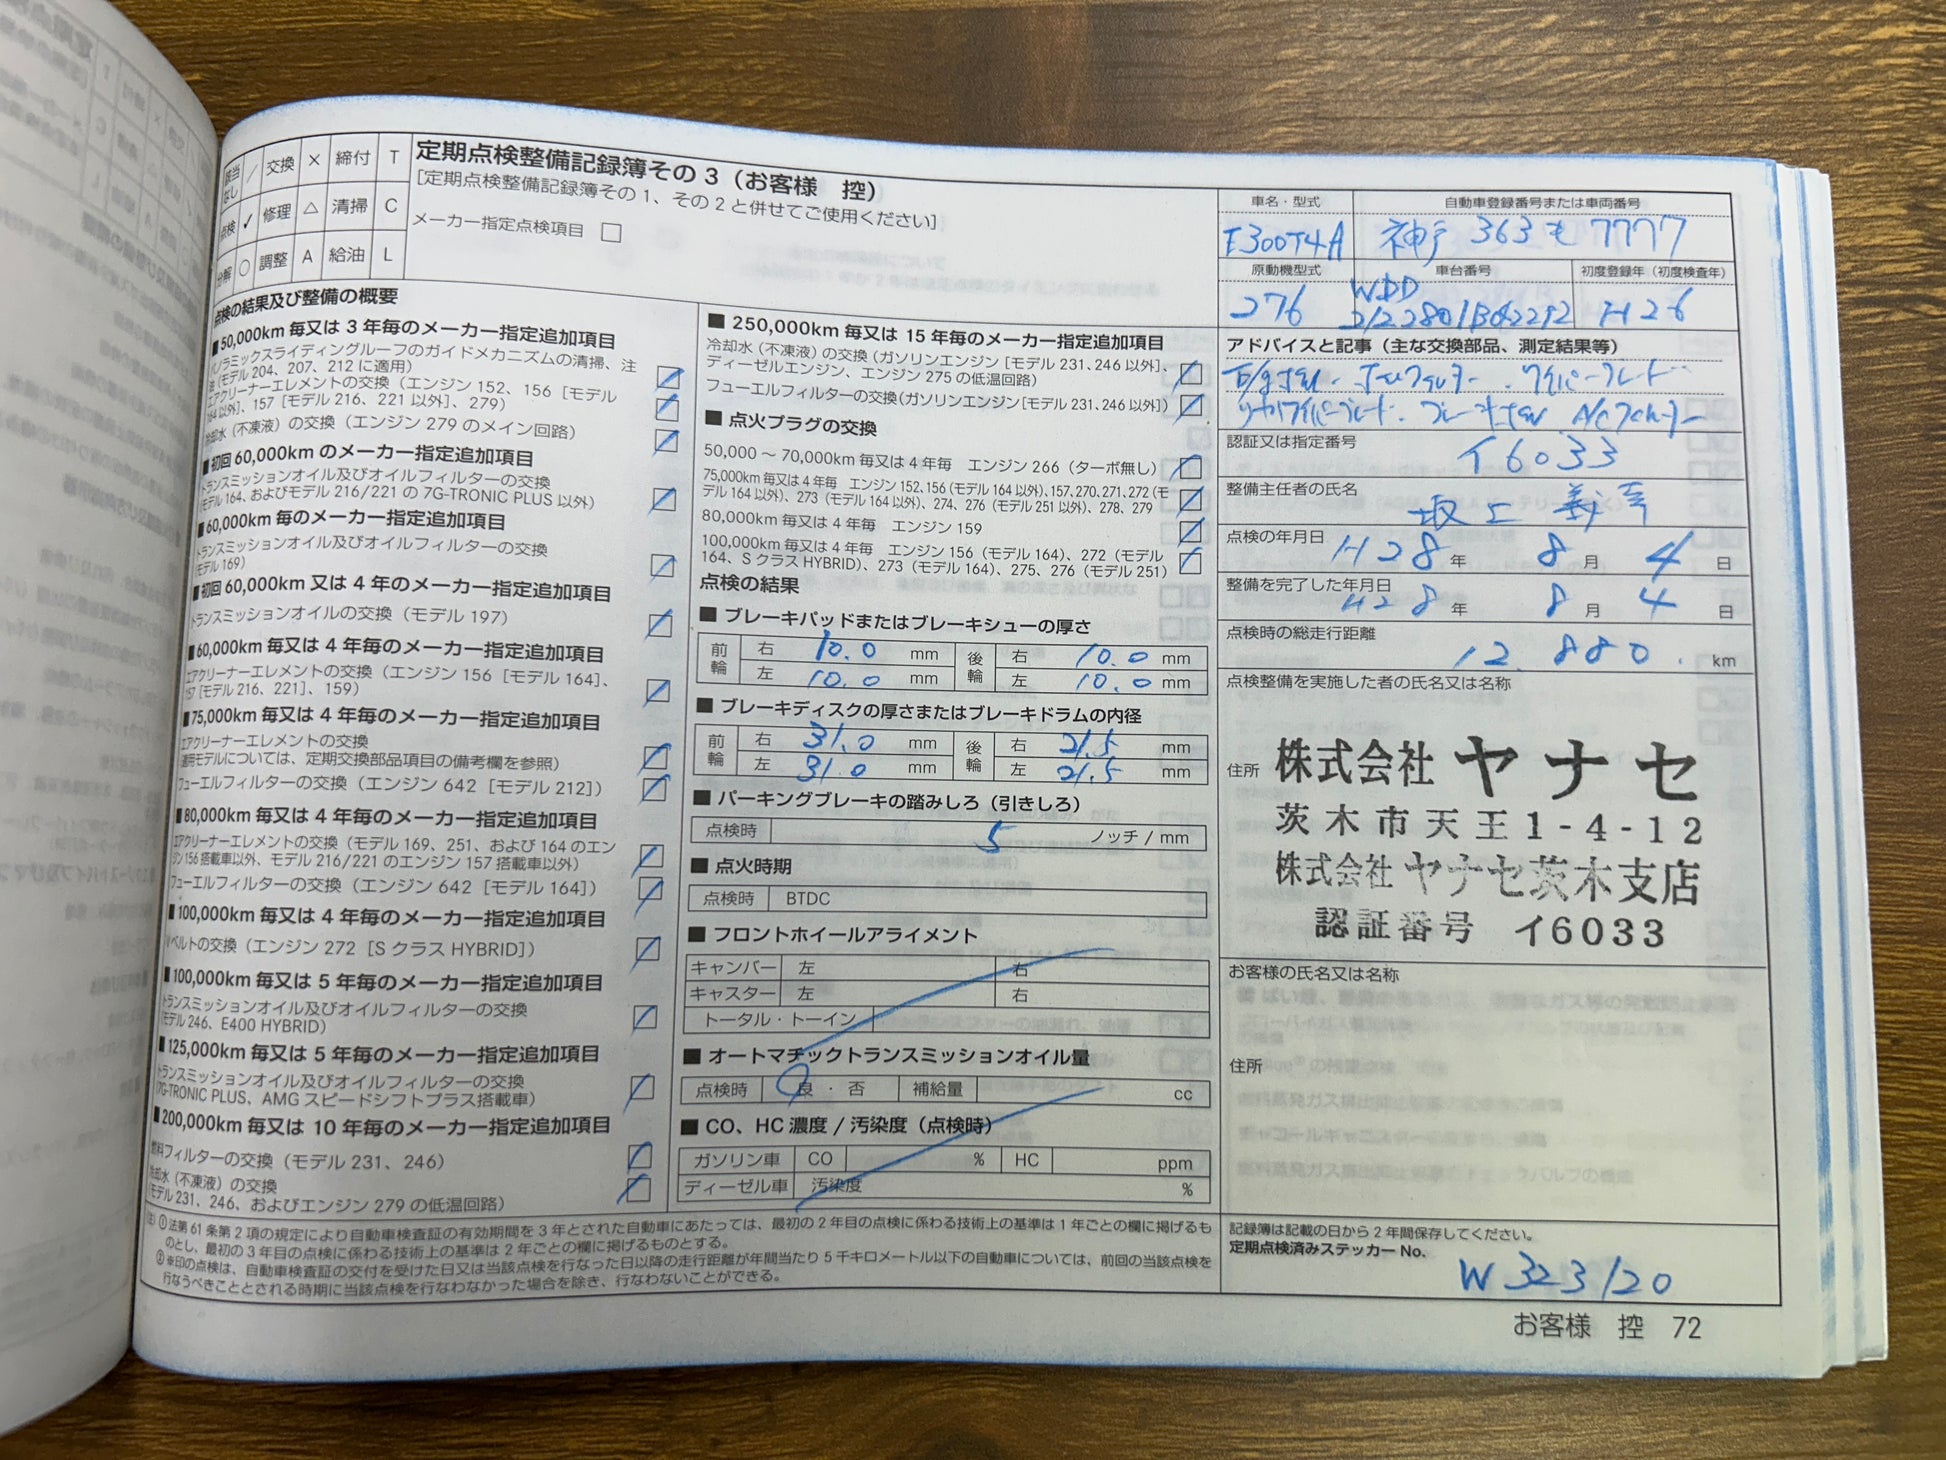 該当なし / 交換 × 締付 T
点検 ✓ 修理 △ 清掃 C
分解 ○ 調整 A 給油 L
定期点検整備記録簿その3（お客様　控）
［定期点検整備記録簿その1、その2と併せてご使用ください］
メーカー指定点検項目 □
点検の結果及び整備の概要
■50,000km毎又は3年毎のメーカー指定追加項目
パノラミックスライディングルーフのガイドメカニズムの清掃、注
油（モデル204、207、212に適用）
エアクリーナーエレメントの交換（エンジン152、156［モデル
164以外］、157［モデル216、221以外］、279）
冷却水（不凍液）の交換（エンジン279のメイン回路）
■初回60,000kmのメーカー指定追加項目
トランスミッションオイル及びオイルフィルターの交換
（モデル164、およびモデル216/221の7G-TRONIC PLUS以外）
■60,000km毎のメーカー指定追加項目
トランスミッションオイル及びオイルフィルターの交換
（モデル169）
■初回60,000km又は4年毎のメーカー指定追加項目
トランスミッションオイルの交換（モデル197）
■60,000km毎又は4年毎のメーカー指定追加項目
エアクリーナーエレメントの交換（エンジン156［モデル164］、
157［モデル216、221］、159）
■75,000km毎又は4年毎のメーカー指定追加項目
エアクリーナーエレメントの交換
（適用モデルについては、定期交換部品項目の備考欄を参照）
フューエルフィルターの交換（エンジン642［モデル212］）
■80,000km毎又は4年毎のメーカー指定追加項目
エアクリーナーエレメントの交換（モデル169、251、および164のエン
ジン156搭載車以外、モデル216/221のエンジン157搭載車以外）
フューエルフィルターの交換（エンジン642［モデル164］）
■100,000km毎又は4年毎のメーカー指定追加項目
Vベルトの交換（エンジン272［SクラスHYBRID］）
■100,000km毎又は5年毎のメーカー指定追加項目
トランスミッションオイル及びオイルフィルターの交換
（モデル246、E400 HYBRID）
■125,000km毎又は5年毎のメーカー指定追加項目
トランスミッションオイル及びオイルフィルターの交換
（7G-TRONIC PLUS、AMGスピードシフトプラス搭載車）
■200,000km毎又は10年毎のメーカー指定追加項目
燃料フィルターの交換（モデル231、246）
冷却水（不凍液）の交換
（モデル231、246、およびエンジン279の低温回路）
■250,000km毎又は15年毎のメーカー指定追加項目
冷却水（不凍液）の交換（ガソリンエンジン［モデル231、246以外］、
ディーゼルエンジン、エンジン275の低温回路）
フューエルフィルターの交換（ガソリンエンジン［モデル231、246以外］）
■点火プラグの交換
50,000～70,000km毎又は4年毎　エンジン266（ターボ無し）
75,000km毎又は4年毎　エンジン152、156（モデル164以外）、157、270、271、272（モ
デル164以外）、273（モデル164以外）、274、276（モデル251以外）、278、279
80,000km毎又は4年毎　エンジン159
100,000km毎又は4年毎　エンジン156（モデル164）、272（モデル
164、SクラスHYBRID）、273（モデル164）、275、276（モデル251）
点検の結果
■ブレーキパッドまたはブレーキシューの厚さ
前輪 右 10.0 mm 後輪 右 10.0 mm
左 10.0 mm 左 10.0 mm
■ブレーキディスクの厚さまたはブレーキドラムの内径
前輪 右 31.0 mm 後輪 右 21.5 mm
左 31.0 mm 左 21.5 mm
■パーキングブレーキの踏みしろ（引きしろ）
点検時 5 ノッチ / mm
■点火時期
点検時 BTDC
■フロントホイールアライメント
キャンバー 左 右
キャスター 左 右
トータル・トーイン
■オートマチックトランスミッションオイル量
点検時 良・否 補給量 cc
■CO、HC濃度/汚染度（点検時）
ガソリン車 CO % HC ppm
ディーゼル車 汚染度 %
（注）①法第61条第2項の規定により自動車検査証の有効期間を3年とされた自動車にあたっては、最初の2年目の点検に係わる技術上の基準は1年ごとの欄に掲げるも
のとし、最初の3年目の点検に係わる技術上の基準は2年ごとの欄に掲げるものとする。
②※印の点検は、自動車検査証の交付を受けた日又は当該点検を行なった日以降の走行距離が年間当たり5千キロメートル以下の自動車については、前回の当該点検を
行なうべきこととされる時期に当該点検を行なわなかった場合を除き、行なわないことができる。
車名・型式 自動車登録番号または車両番号
E300T4A 神戸 363 も 7777
原動機型式 車台番号 初度登録年（初度検査年）
276 WDD H26
アドバイスと記事（主な交換部品、測定結果等）
E/gオイル．オイルフィルター．ワイパーブレード
リヤワイパーブレード．ブレーキオイル．A/Cフィルター
認証又は指定番号
イ6033
整備主任者の氏名
坂上 義
点検の年月日 H28年 8月 4日
整備を完了した年月日 H28年 8月 4日
点検時の総走行距離
12.880. km
点検整備を実施した者の氏名又は名称
株式会社ヤナセ
住所 茨木市天王1-4-12
株式会社ヤナセ茨木支店
認証番号 イ6033
お客様の氏名又は名称
住所
記録簿は記載の日から2年間保存してください。
定期点検済みステッカーNo.
W323120
お客様　控　72